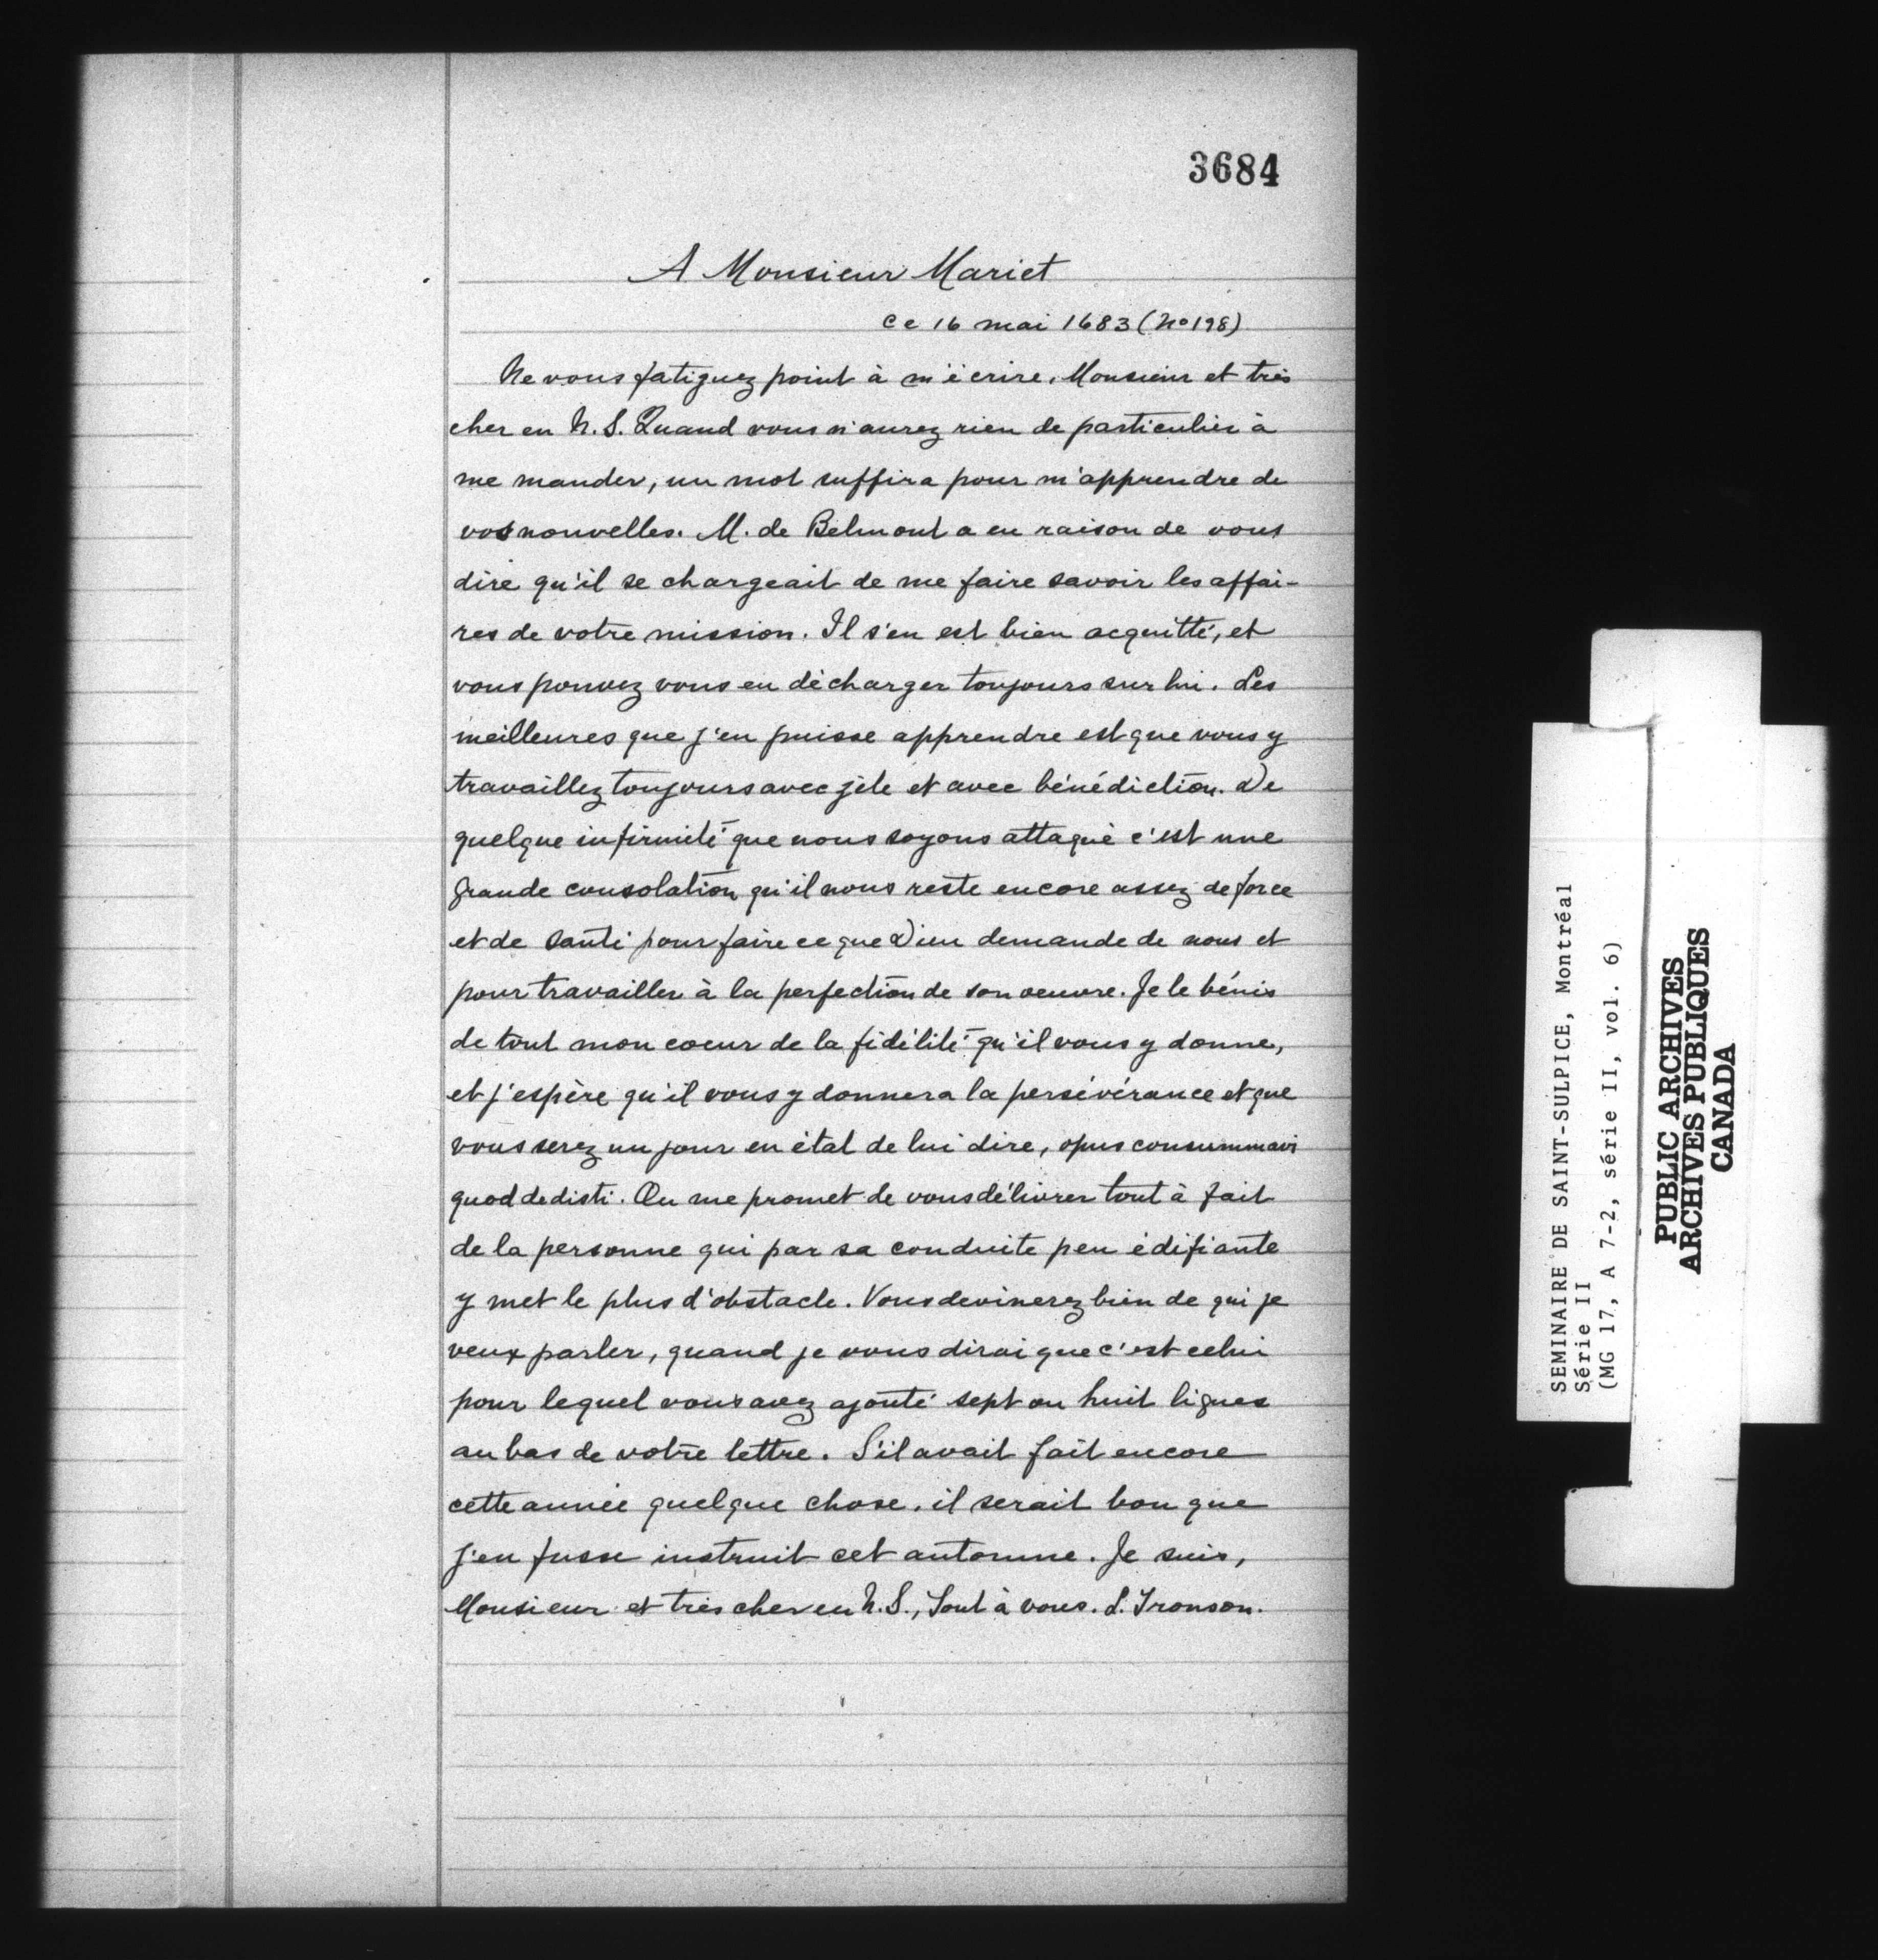 3684
A Monsieur Mariet
ce 16 mai 1683 (No 198)
Ne vous fatiguez point à m'écrire, Monsieur et très
cher en N. S. Quand vous n'aurez rien de particulier à
me mander, un mot suffira pour m'apprendre de
vos nouvelles. M. de Belmont a eu raison de vous
dire qu'il se chargeait de me faire savoir les affai-
res de votre mission. Il s'en est bien acquitté, et
vous pouvez vous en décharger toujours sur lui. Les
meilleures que j'en puisse apprendre est que vous y
travaillez toujours avec zèle et avec bénédiction. De
quelque infirmité que nous soyons attaqué c'est une
grande consolation qu'il nous reste encore assez de force
et de santé pour faire ce que Dieu demande de nous et
pour travailler à la perfection de son oeuvre. Je le bénis
de tout mon coeur de la fidélité qu'il vous y donne,
et j'espère qu'il vous y donnera la persévérance et que
vous serez un jour en état de lui dire, opus consummavi
quod dedisti. On me promet de vous délivrer tout à fait
de la personne qui par sa conduite peu édifiante
y met le plus d'obstacle. Vous devinerez bien de qui je
veux parler, quand je vous dirai que c'est celui
pour lequel vous avez ajouté sept ou huit lignes
au bas de votre lettre. S'il avait fait encore
cette année quelque chose, il serait bon que
j'en fusse instruit cet automne. Je suis,
Monsieur et très cher en N. S., Tout à vous. L. Tronson.
SEMINAIRE DE SAINT-SULPICE, Montréal
Série II
(MG 17, A 7-2, série II, vol. 6)
PUBLIC ARCHIVES
ARCHIVES PUBLIQUES
CANADA